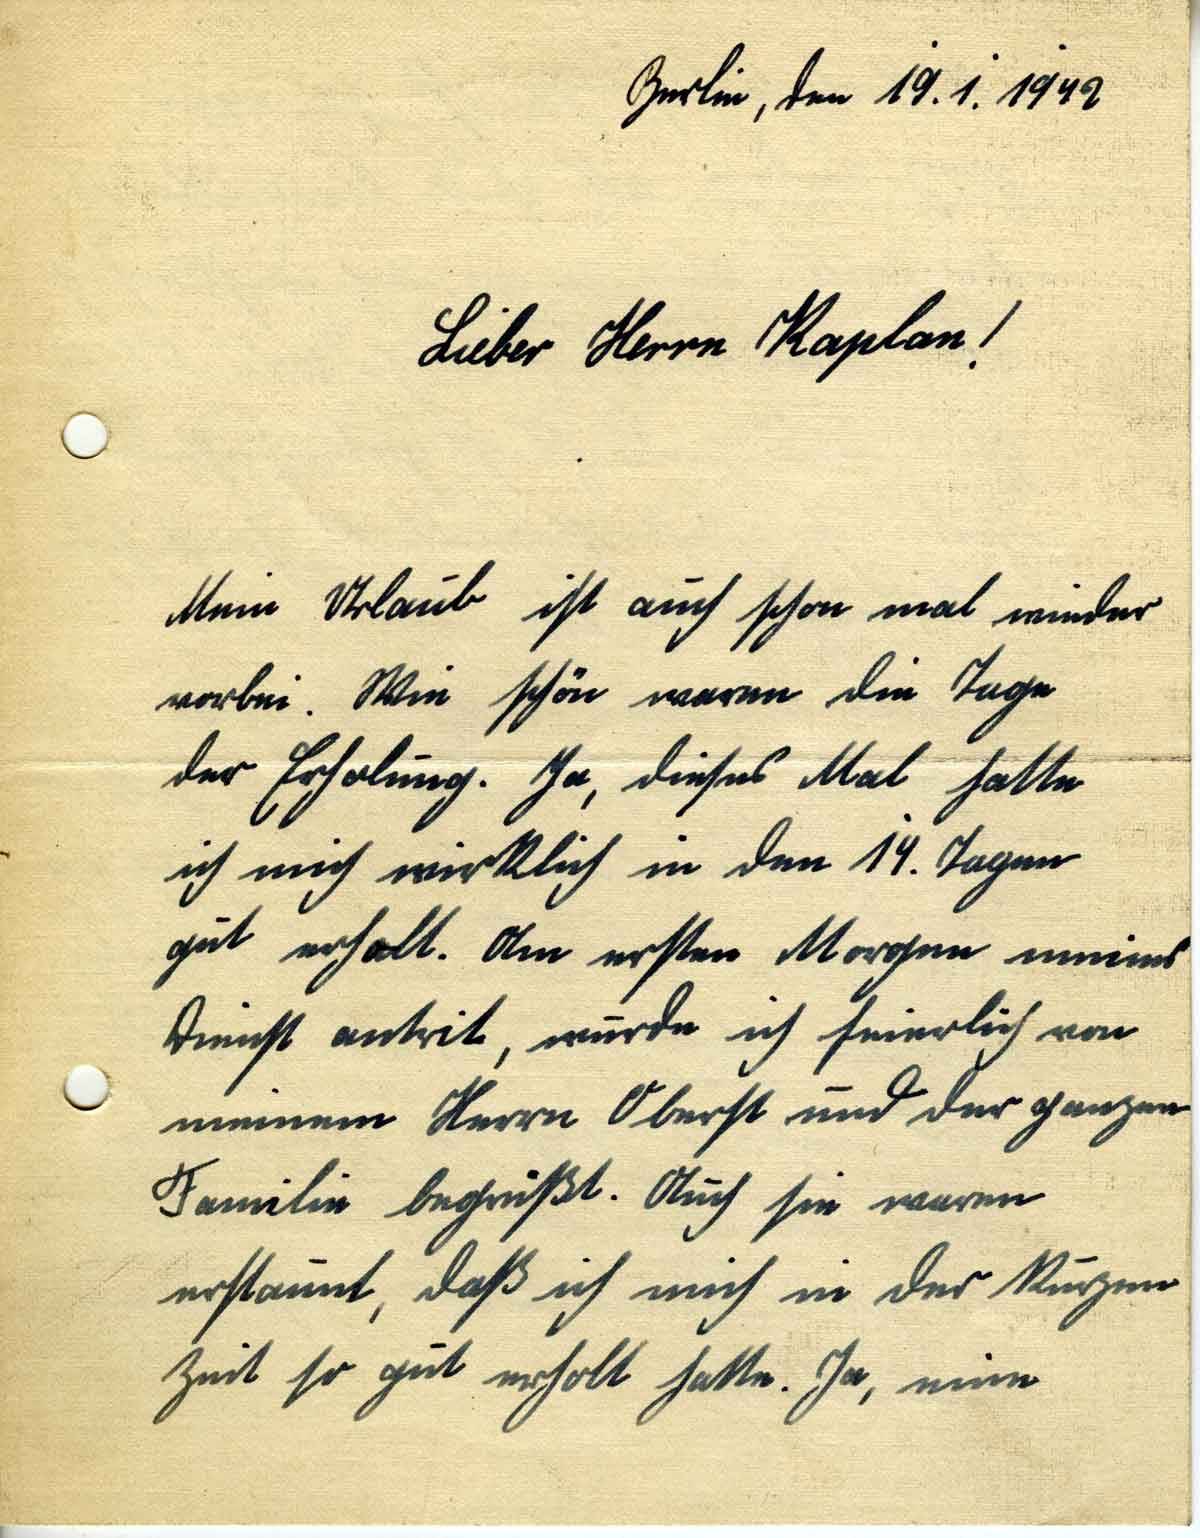 Berlin, den 19.1.1942
Lieber Herrn Kaplan!
Mein Urlaub ist auch schon mal wieder
vorbei. Wie schön waren die Tage
der Erholung. Ja, dieses Mal hatte
ich mich wirklich in den 14. Tagen
gut erholt. Am ersten Morgen meines
Dienst antrit, wurde ich feierlich von
meinem Herrn Oberst und der ganzen
Familie begrüßt. Auch sie waren
erstaunt, daß ich mich in der Kurzen
Zeit so gut erholt hatte. Ja, eine